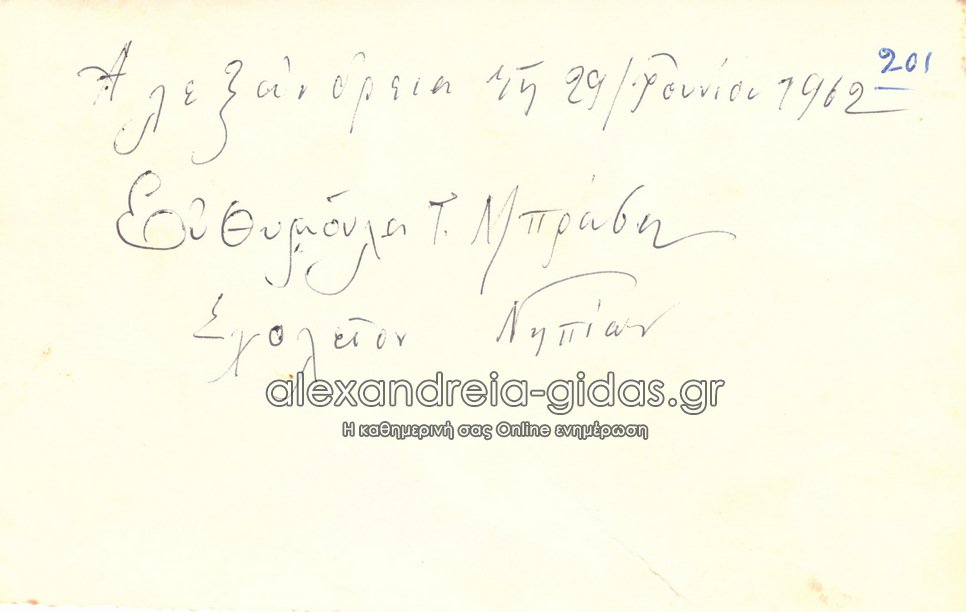 201
Ἀλεξάνδρεια τῇ 29/Ἰουνίου 1962
Εὐθυμούλα Τ. Μπράβα
Σχολεῖον Νηπίων
alexandreia-gidas.gr
Η καθημερινή σας Online ενημέρωση